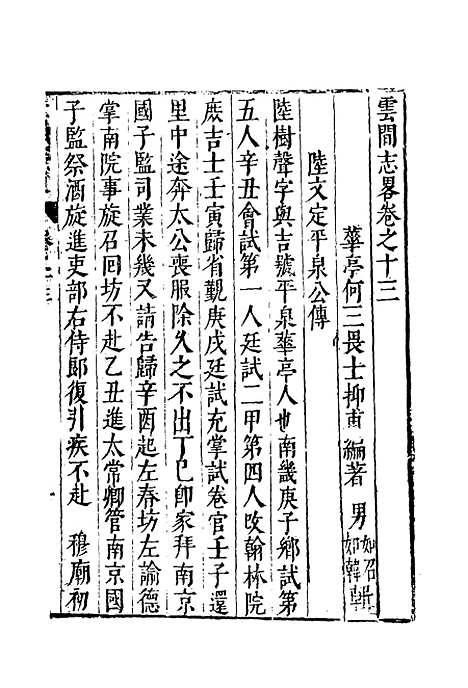 雲間志畧卷之十三
華亭何三畏士抑甫 編著 男 如召 如韓
陸文定平泉公傳
陸樹聲字與吉號平泉華亭人也南畿庚子鄉試第
五人辛丑會試第一人廷試二甲第四人改翰林院
庶吉士壬寅歸省覲庚戌廷試充掌試卷官壬子還
里中途奔太公喪服除久之不出丁巳卽家拜南京
國子監司業未幾又請告歸辛酉起左春坊左諭德
掌南院事旋召回坊不赴乙丑進太常卿管南京國
子監祭酒旋進吏部右侍郎復引疾不赴 穆廟初